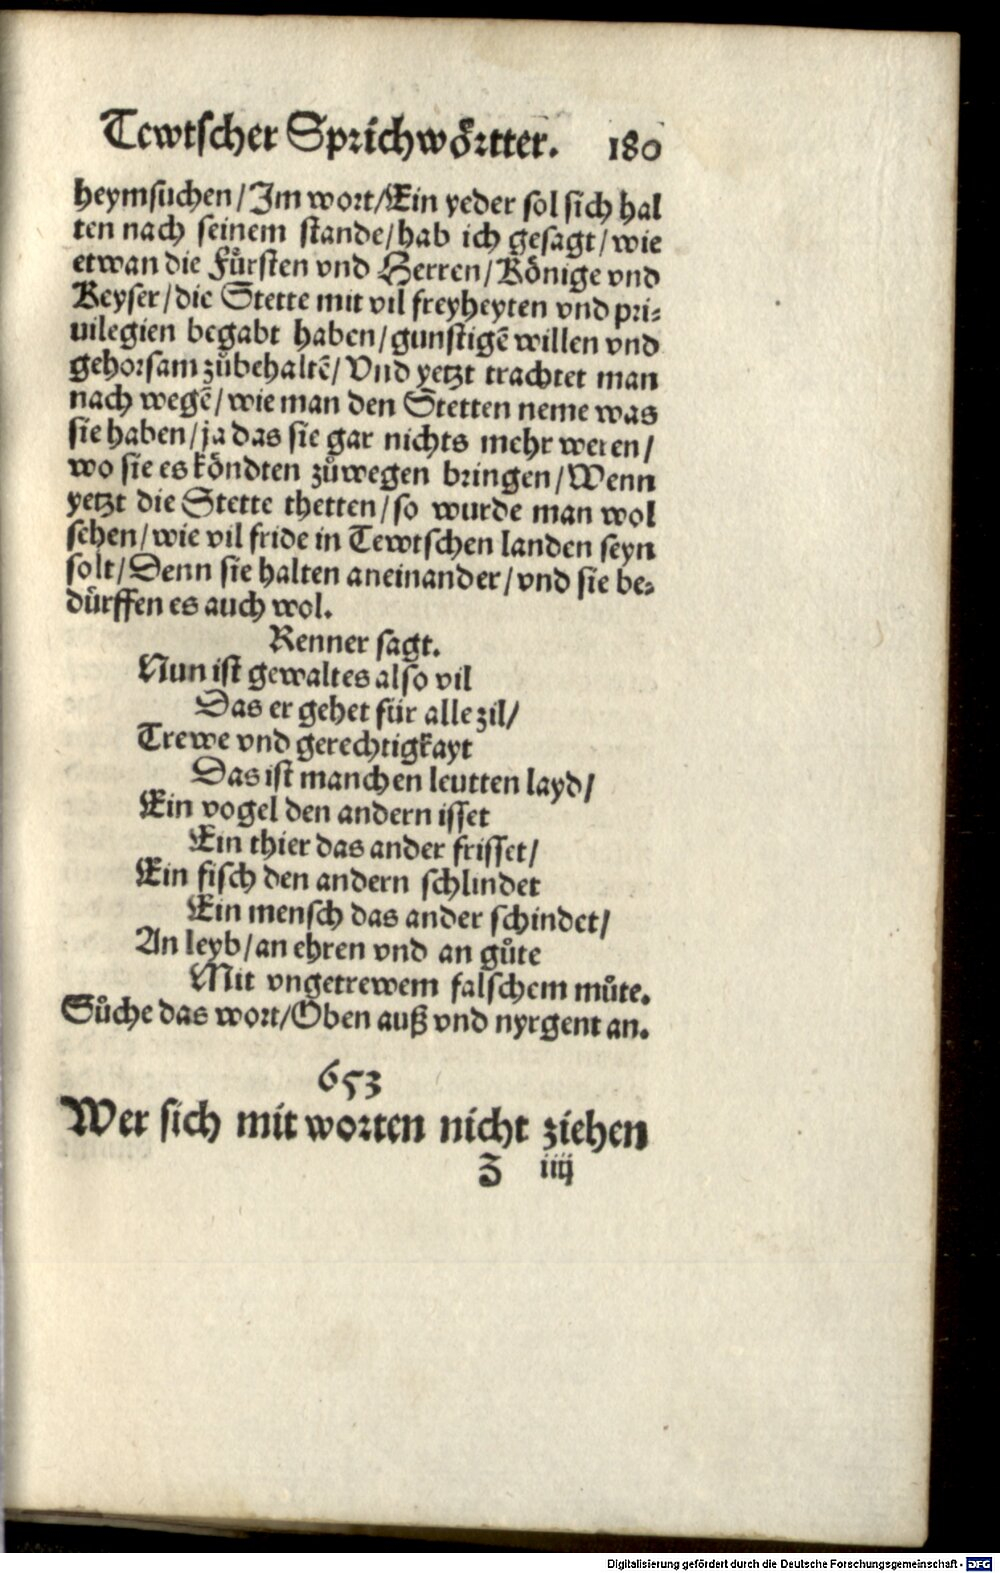 Tewtscher Sprichwörtter. 180
heymsuchen/Im wort/Ein yeder sol sich hal
ten nach seinem stande/hab ich gesagt/wie
etwan die Fürsten vnd Herren/Könige vnd
Keyser/die Stette mit vil freyheyten vnd pri⸗
uilegien begabt haben/gunstigē willen vnd
gehorsam zůbehaltē/Vnd yetzt trachtet man
nach wegē/wie man den Stetten neme was
sie haben/ja das sie gar nichts mehr weren/
wo sie es köndten zůwegen bringen/Wenn
yetzt die Stette thetten/so wurde man wol
sehen/wie vil fride in Tewtschen landen seyn
solt/Denn sie halten aneinander/vnd sie be⸗
dürffen es auch wol.
Renner sagt.
Nun ist gewaltes also vil
Das er gehet für alle zil/
Trewe vnd gerechtigkayt
Das ist manchen leutten layd/
Ein vogel den andern isset
Ein thier das ander frisset/
Ein fisch den andern schlindet
Ein mensch das ander schindet/
An leyb/an ehren vnd an gůte
Mit vngetrewem falschem můte.
Sůche das wort/Oben auß vnd nyrgent an.
653
Wer sich mit worten nicht ziehen
Z iiij
Digitalisierung gefördert durch die Deutsche Forschungsgemeinschaft - DFG